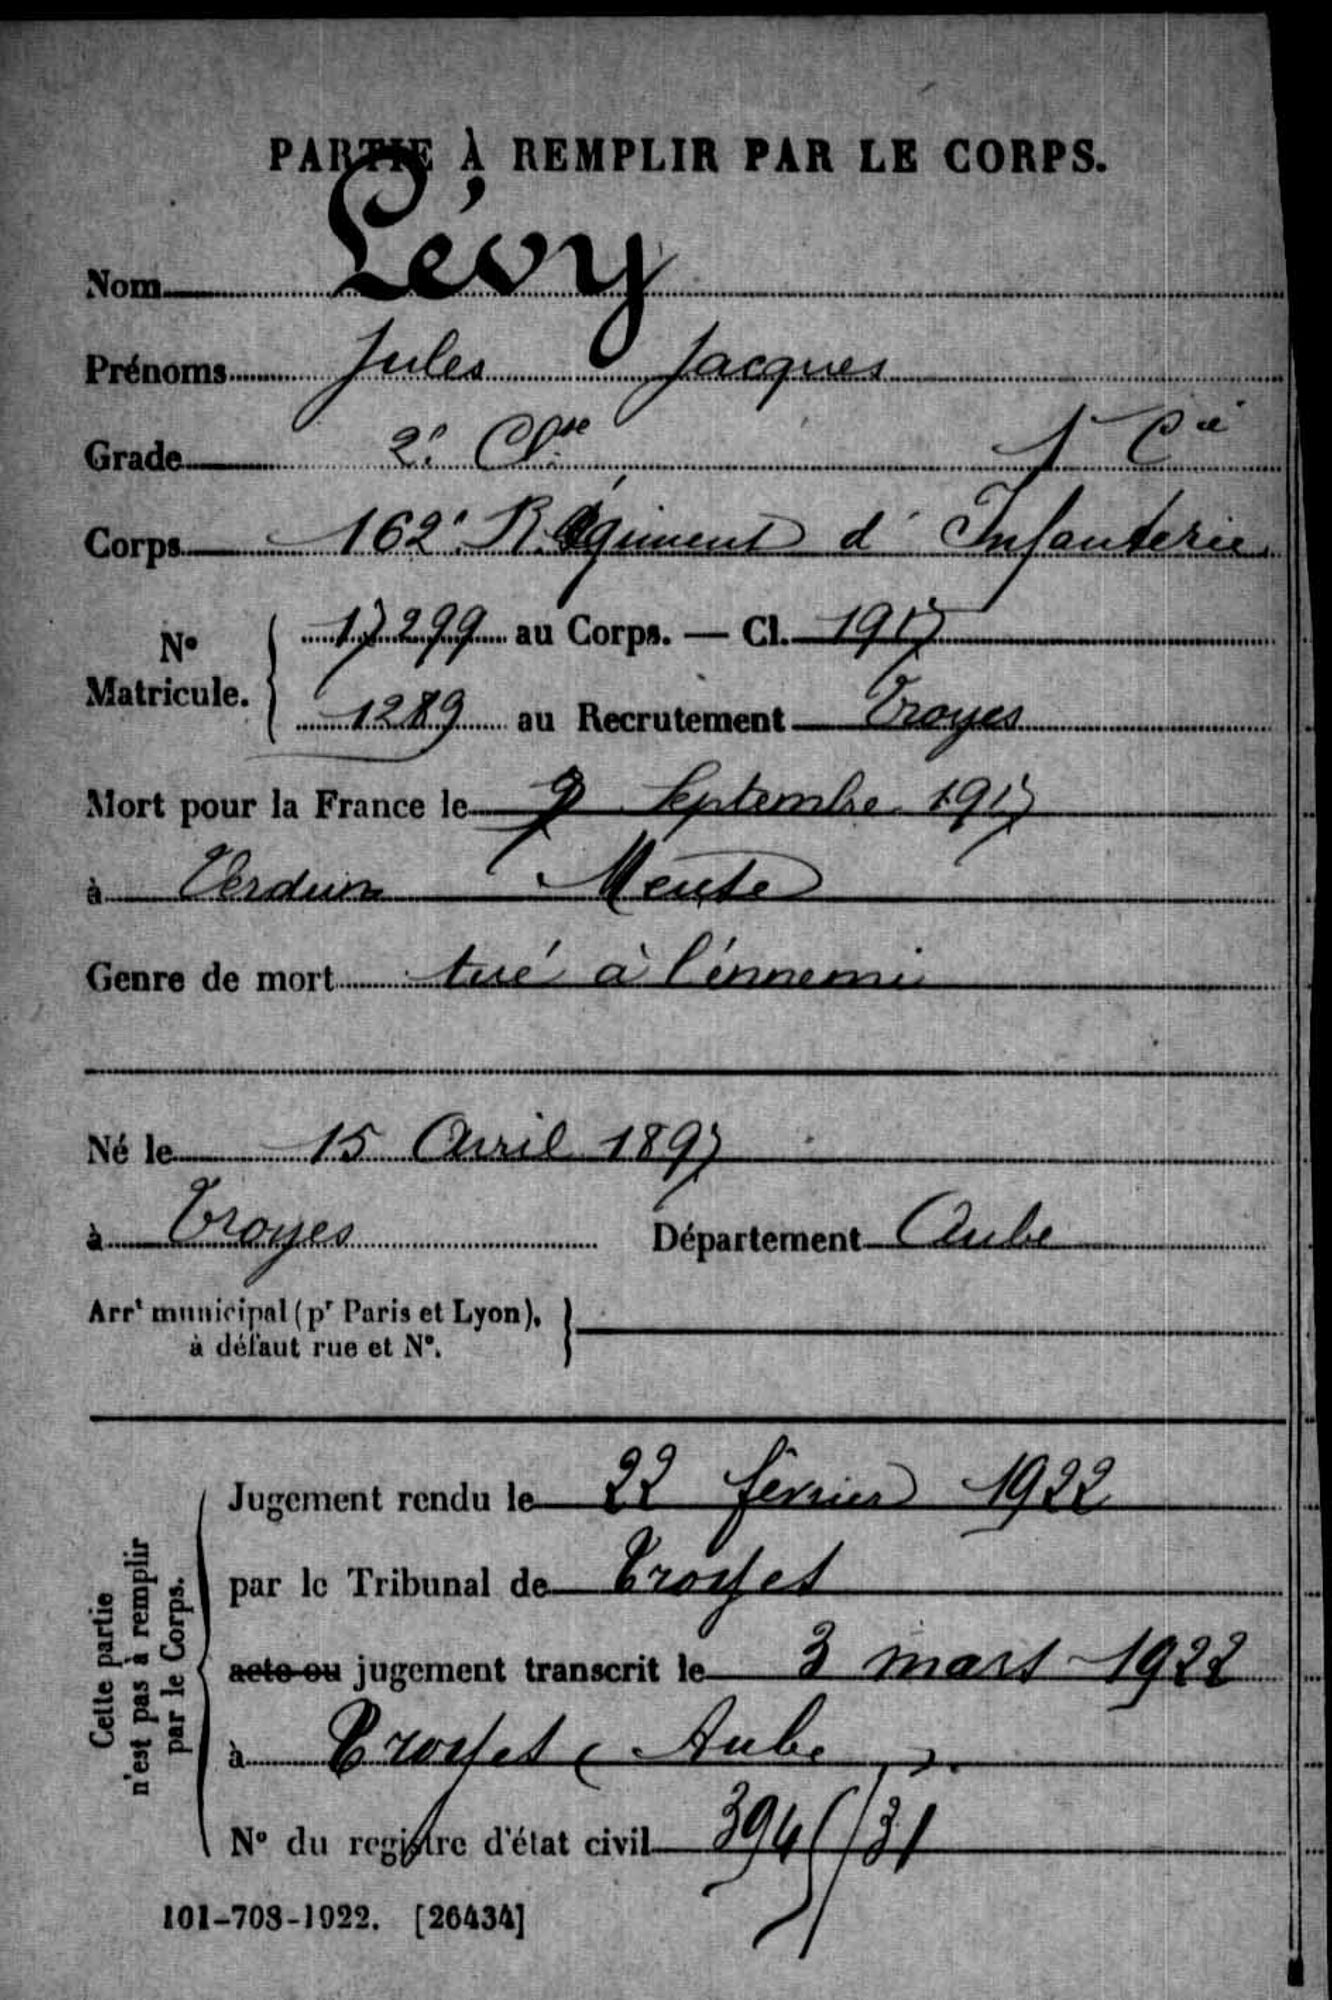 PARTIE À REMPLIR PAR LE CORPS.
Nom Lévy
Prénoms Jules Jacques
Grade 2e Clsse 1e Cie
Corps 162e Régiment d'Infanterie
No Matricule. 17299 au Corps. — Cl. 1917
1289 au Recrutement Troyes
Mort pour la France le Septembre 1917
à Verdun Meuse
Genre de mort tué à l'énnemi
Né le 15 Avril 1897
à Troyes Département Aube
Arrt municipal (pr Paris et Lyon), à défaut rue et No.
Cette partie n'est pas à remplir par le Corps.
Jugement rendu le 22 février 1922
par le Tribunal de Troyes
acte ou jugement transcrit le 3 mars 1922
à Troyes (Aube).
No du registre d'état civil 394/31
101-708-1922. [26434]